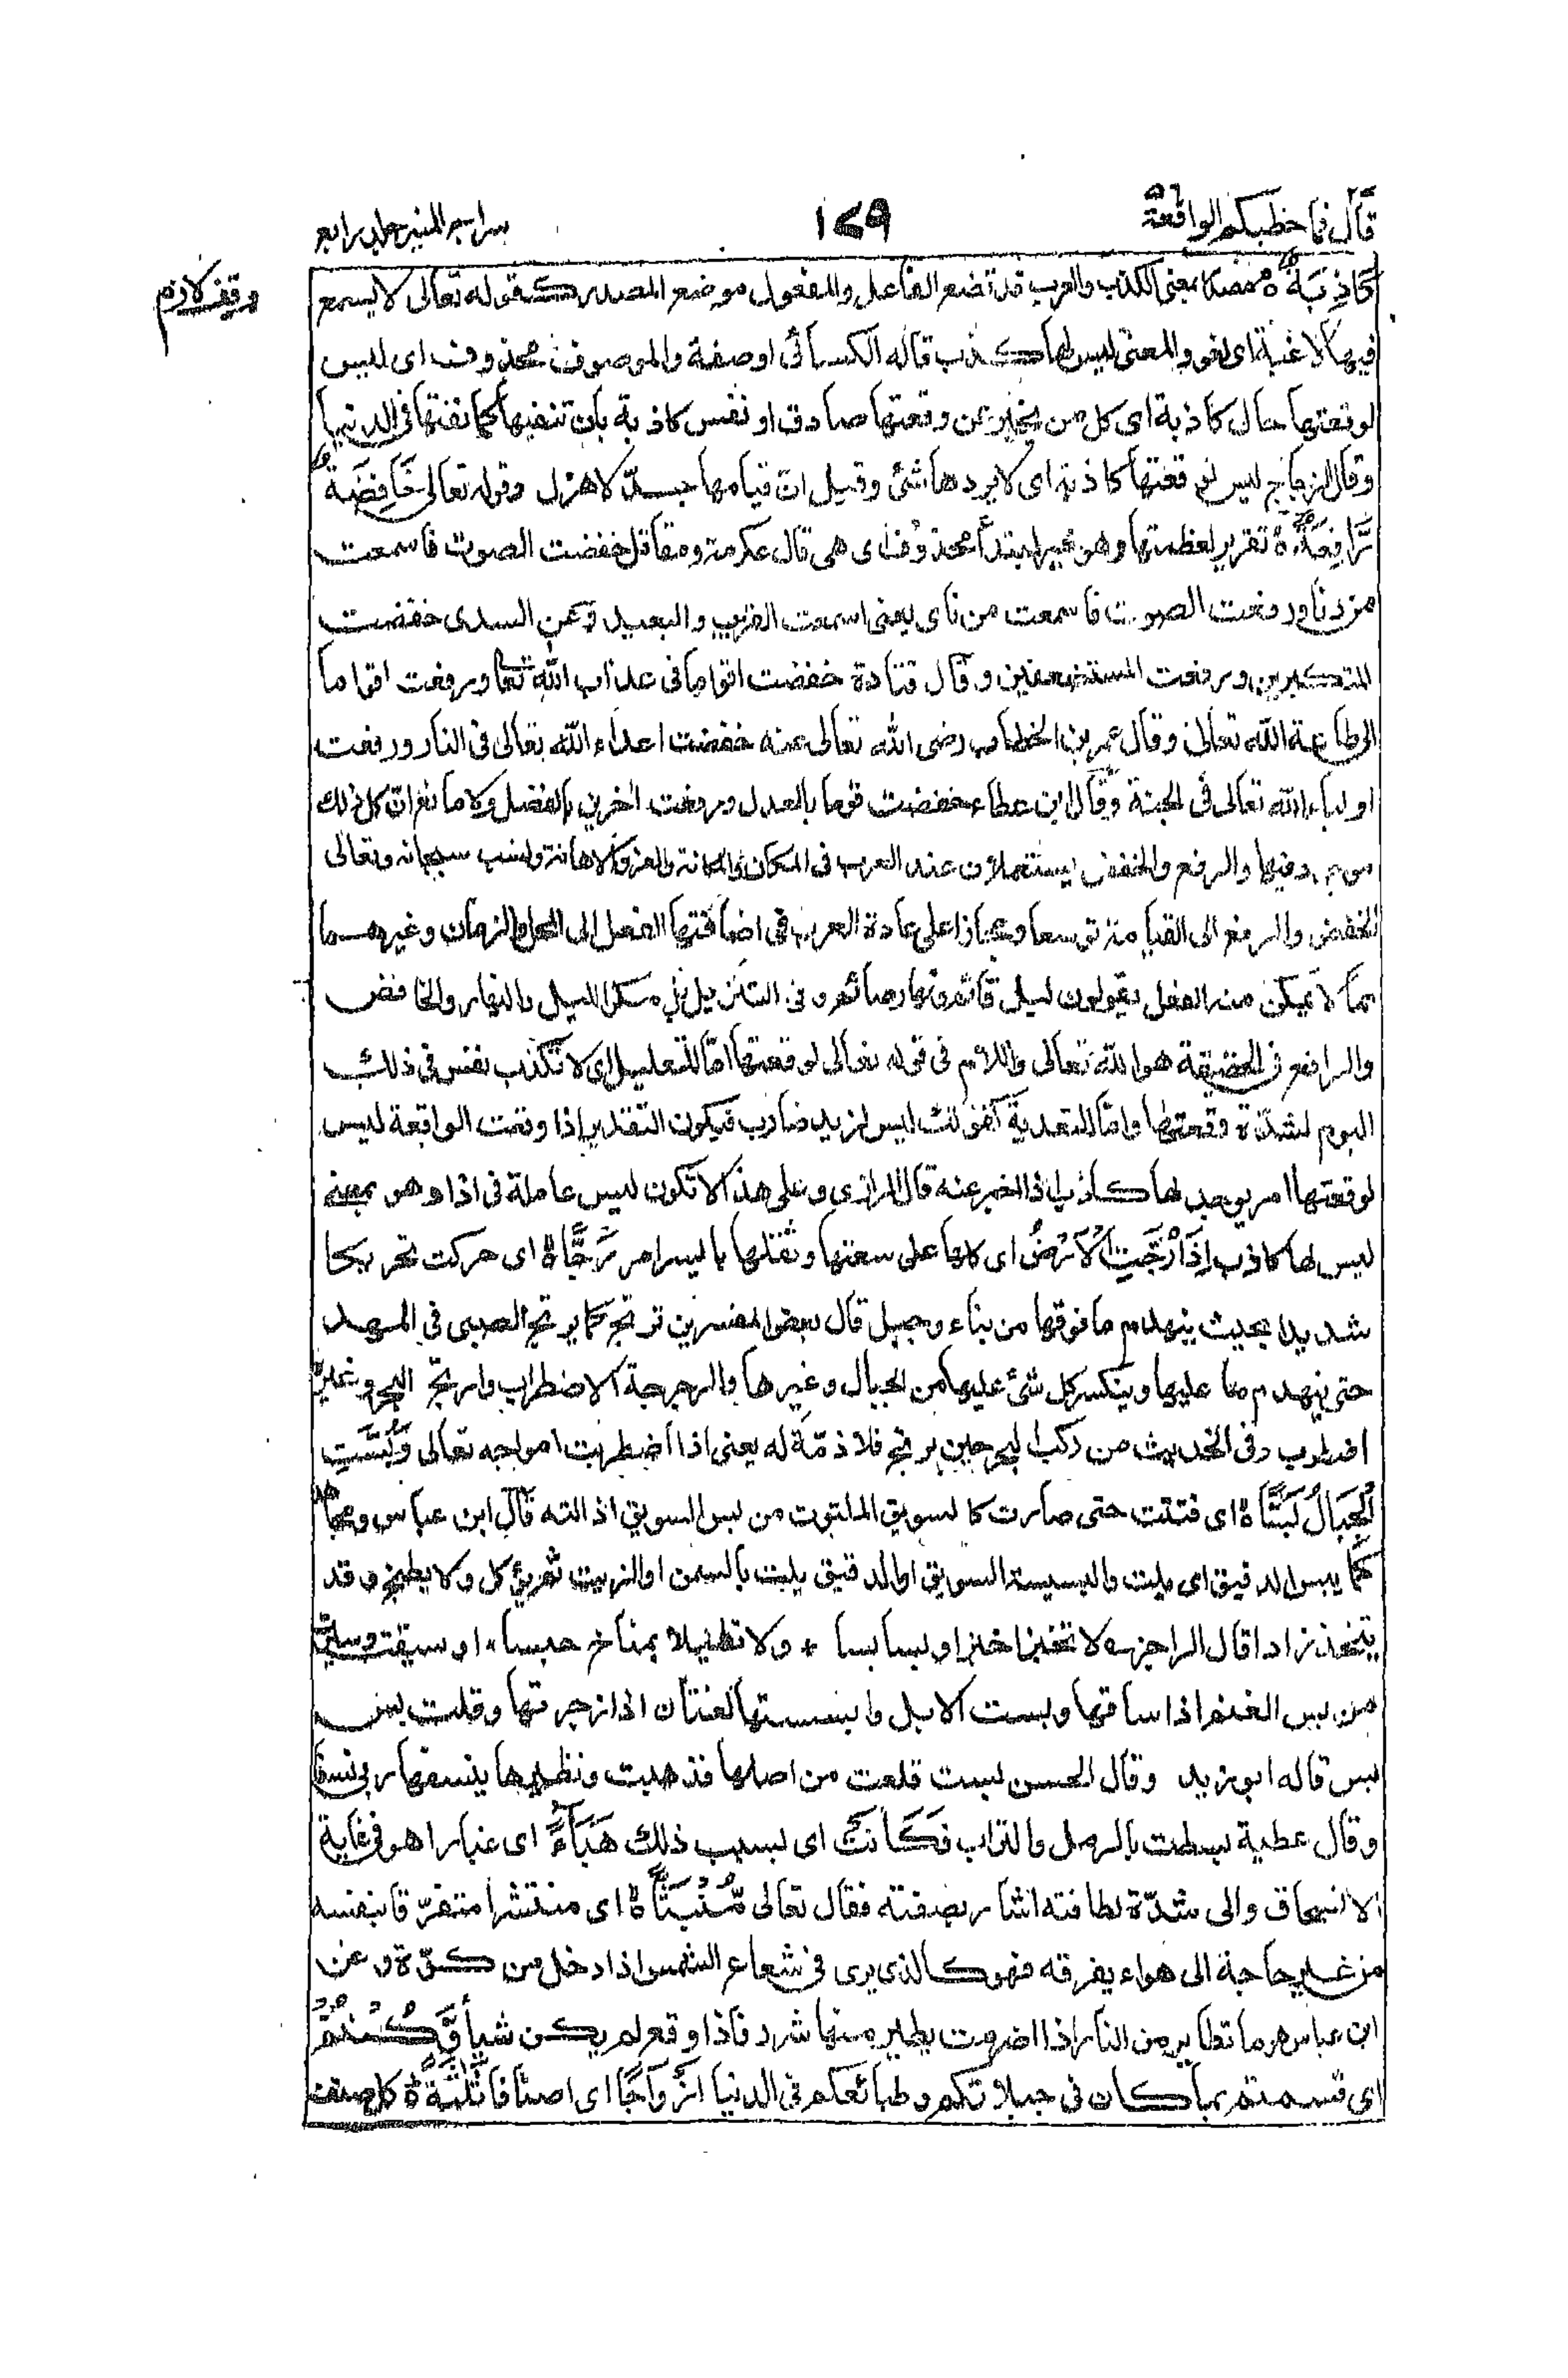 قال فما خطبكم الواقعة ٥٦
١٧٩
سراج المنير جلد رابع
وقف لازم
كَاذِبَةٌ مصدر بمعنى الكذب والعرب قد تضع الفاعل والمفعول موضع المصدر كقوله تعالى لا يسمع
فيها لاغية اى لغو والمعنى ليس لها كذب قاله الكسائى او صفة والموصوف محذوف اى ليس
لوقعتها حال كاذبة اى كل من يخبر عن وقعتها صادق او نفس كاذبة بان تنفيها كما نفتها فى الدنيا
وقال الزجاج ليس لوقعتها كاذبة اى لا يردها شئ وقيل ان قيامها جد لا هزل وقوله تعالى خَافِضَةٌ
رَّافِعَةٌ تقرير لعظمتها وهو خبر لمبتدأ محذوف اى هى قال عكرمة ومقاتل خفضت الصوت فاسمعت
من دنا ورفعت الصوت فاسمعت من ناى يعنى اسمعت القريب والبعيد وعن السدى خفضت
المتكبرين ورفعت المستضعفين وقال قتادة خفضت اقواما فى عذاب الله تعا ورفعت اقواما
الى طاعة الله تعالى وقال عمر بن الخطاب رضى الله تعالى عنه خفضت اعداء الله تعالى فى النار ورفعت
اولياء الله تعالى فى الجنة وقال ابن عطاء خفضت قوما بالعدل ورفعت اخرين بالفضل ولا مانع ان كل ذلك
موجود فيها والرفع والخفض يستعملان عند العرب فى المكان والمكانة والعز والاهانة ونسب سبحانه وتعالى
الخفض والرفع الى القيامة توسعا ومجازا على عادة العرب فى اضافتها الفعل الى المحل والزمان وغيرهما
مما لا يمكن منه الفعل يقولون ليل قائم ونهار صائم وفى التنزيل بل مكر الليل والنهار والخافض
والرافع فى الحقيقة هو الله تعالى واللام فى قوله تعالى لوقعتها اما للتعليل اى لا تكذب نفس فى ذلك
اليوم لشدة وقعتها واما للتعدية كقولك ليس لزيد ضارب فيكون التقدير اذا وقعت الواقعة ليس
لوقعتها امر يوجد لها كاذب اذا اخبر عنه قال الرازى وعلى هذا لا تكون ليس عاملة فى اذا وهو بمعنى
ليس لها كاذب اِذَا رُجَّتِ الْاَرْضُ اى كلها على سعتها وثقلها بايسر امر رَجًّا اى حركت تحريكا
شديدا بحيث ينهدم ما فوقها من بناء وجبل قال بعض المفسرين ترتج كما يرتج الصبى فى المهد
حتى ينهدم ما عليها وينكسر كل شئ عليها من الجبال وغيرها والرجرجة الاضطراب وارتج البحر وغيره
اضطرب وفى الحديث من ركب البحر حين يرتج فلا ذمة له يعنى اذا اضطربت امواجه تعالى وَبُسَّتِ
الْجِبَالُ بَسًّا اى فتتت حتى صارت كالسويق الملتوت من بس السويق اذا لته قال ابن عباس ومجاهد
كما يبس الدقيق اى يلت والبسيسة السويق او الدقيق يلت بالسمن او الزيت ثم يؤكل ولا يطبخ وقد
يتخذ زادا قال الراجز لا تخبزا خبزا وبسا بسا * ولا تطيلا بمناخ حبسا * او سيقت وسيرت
من بس الغنم اذا ساقها وبست الابل وابسستها لغتان اذا زجرتها وقلت بس
بس قاله ابو زيد وقال الحسن بست قلعت من اصلها فذهبت ونظيرها ينسفها ربى نسفا
وقال عطية بسطت بالرمل والتراب فَكَانَتْ اى بسبب ذلك هَبَآءً اى غبارا هو فى غاية
الانسحاق والى شدة لطافته اشار بصفته فقال تعالى مُّنْبَثًّا اى منتشرا متفرقا بنفسه
من غير حاجة الى هواء يفرقه فهو كالذى يرى فى شعاع الشمس اذا دخل من كوة وعن
ابن عباس هو ما تطاير من النار اذا اضرمت يطير منها شرر فاذا وقع لم يكن شيأ وَّكُنْتُمْ
اى قسمتم بما كان فى جبلاتكم وطبائعكم فى الدنيا اَزْوَاجًا اى اصنافا ثَلٰثَةً كل صنف